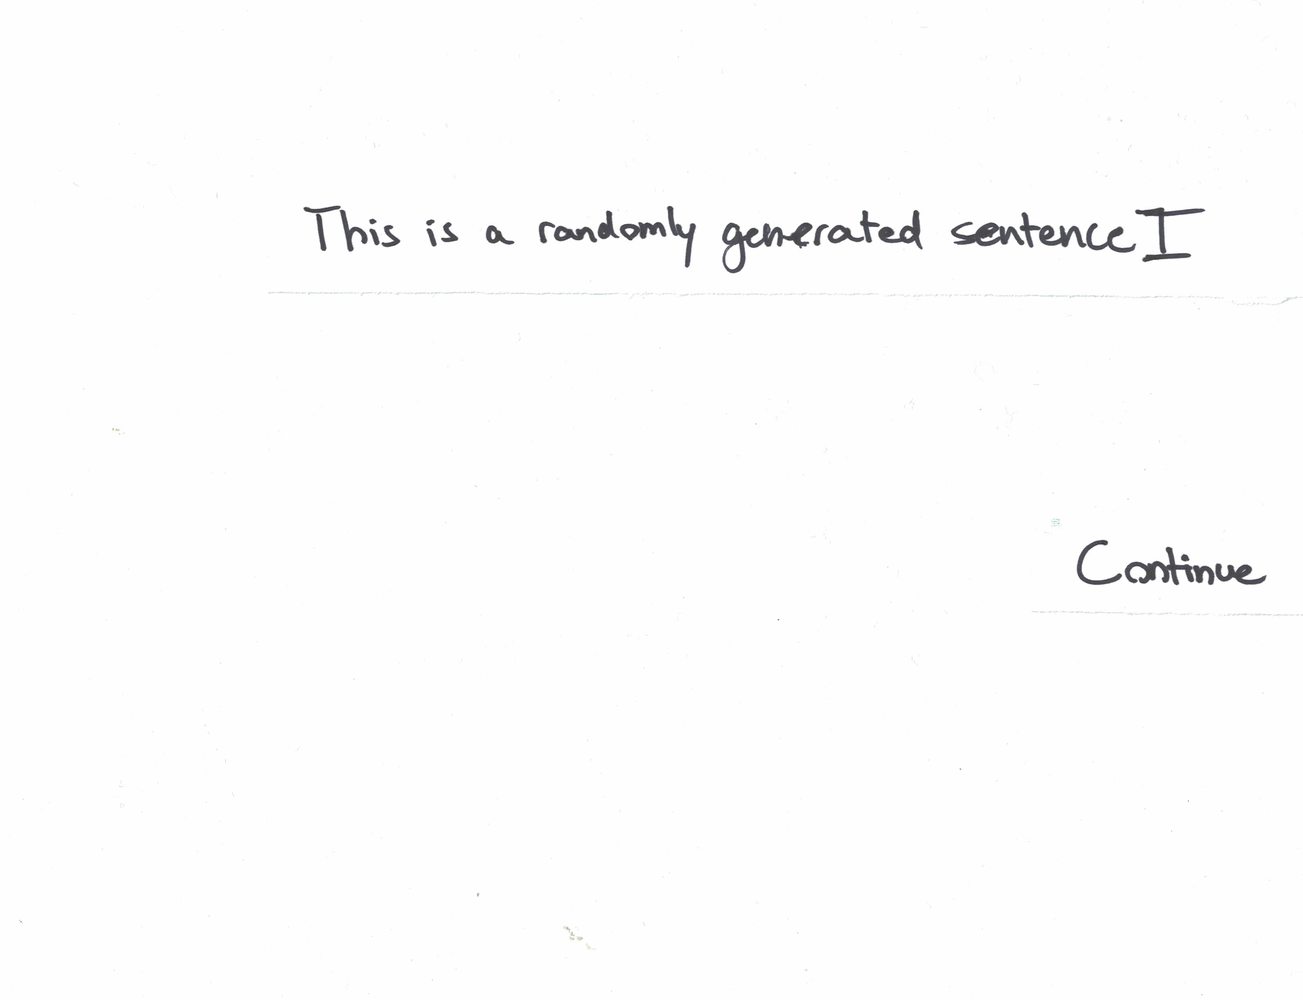 This is a randomly generated sentence I
Continue